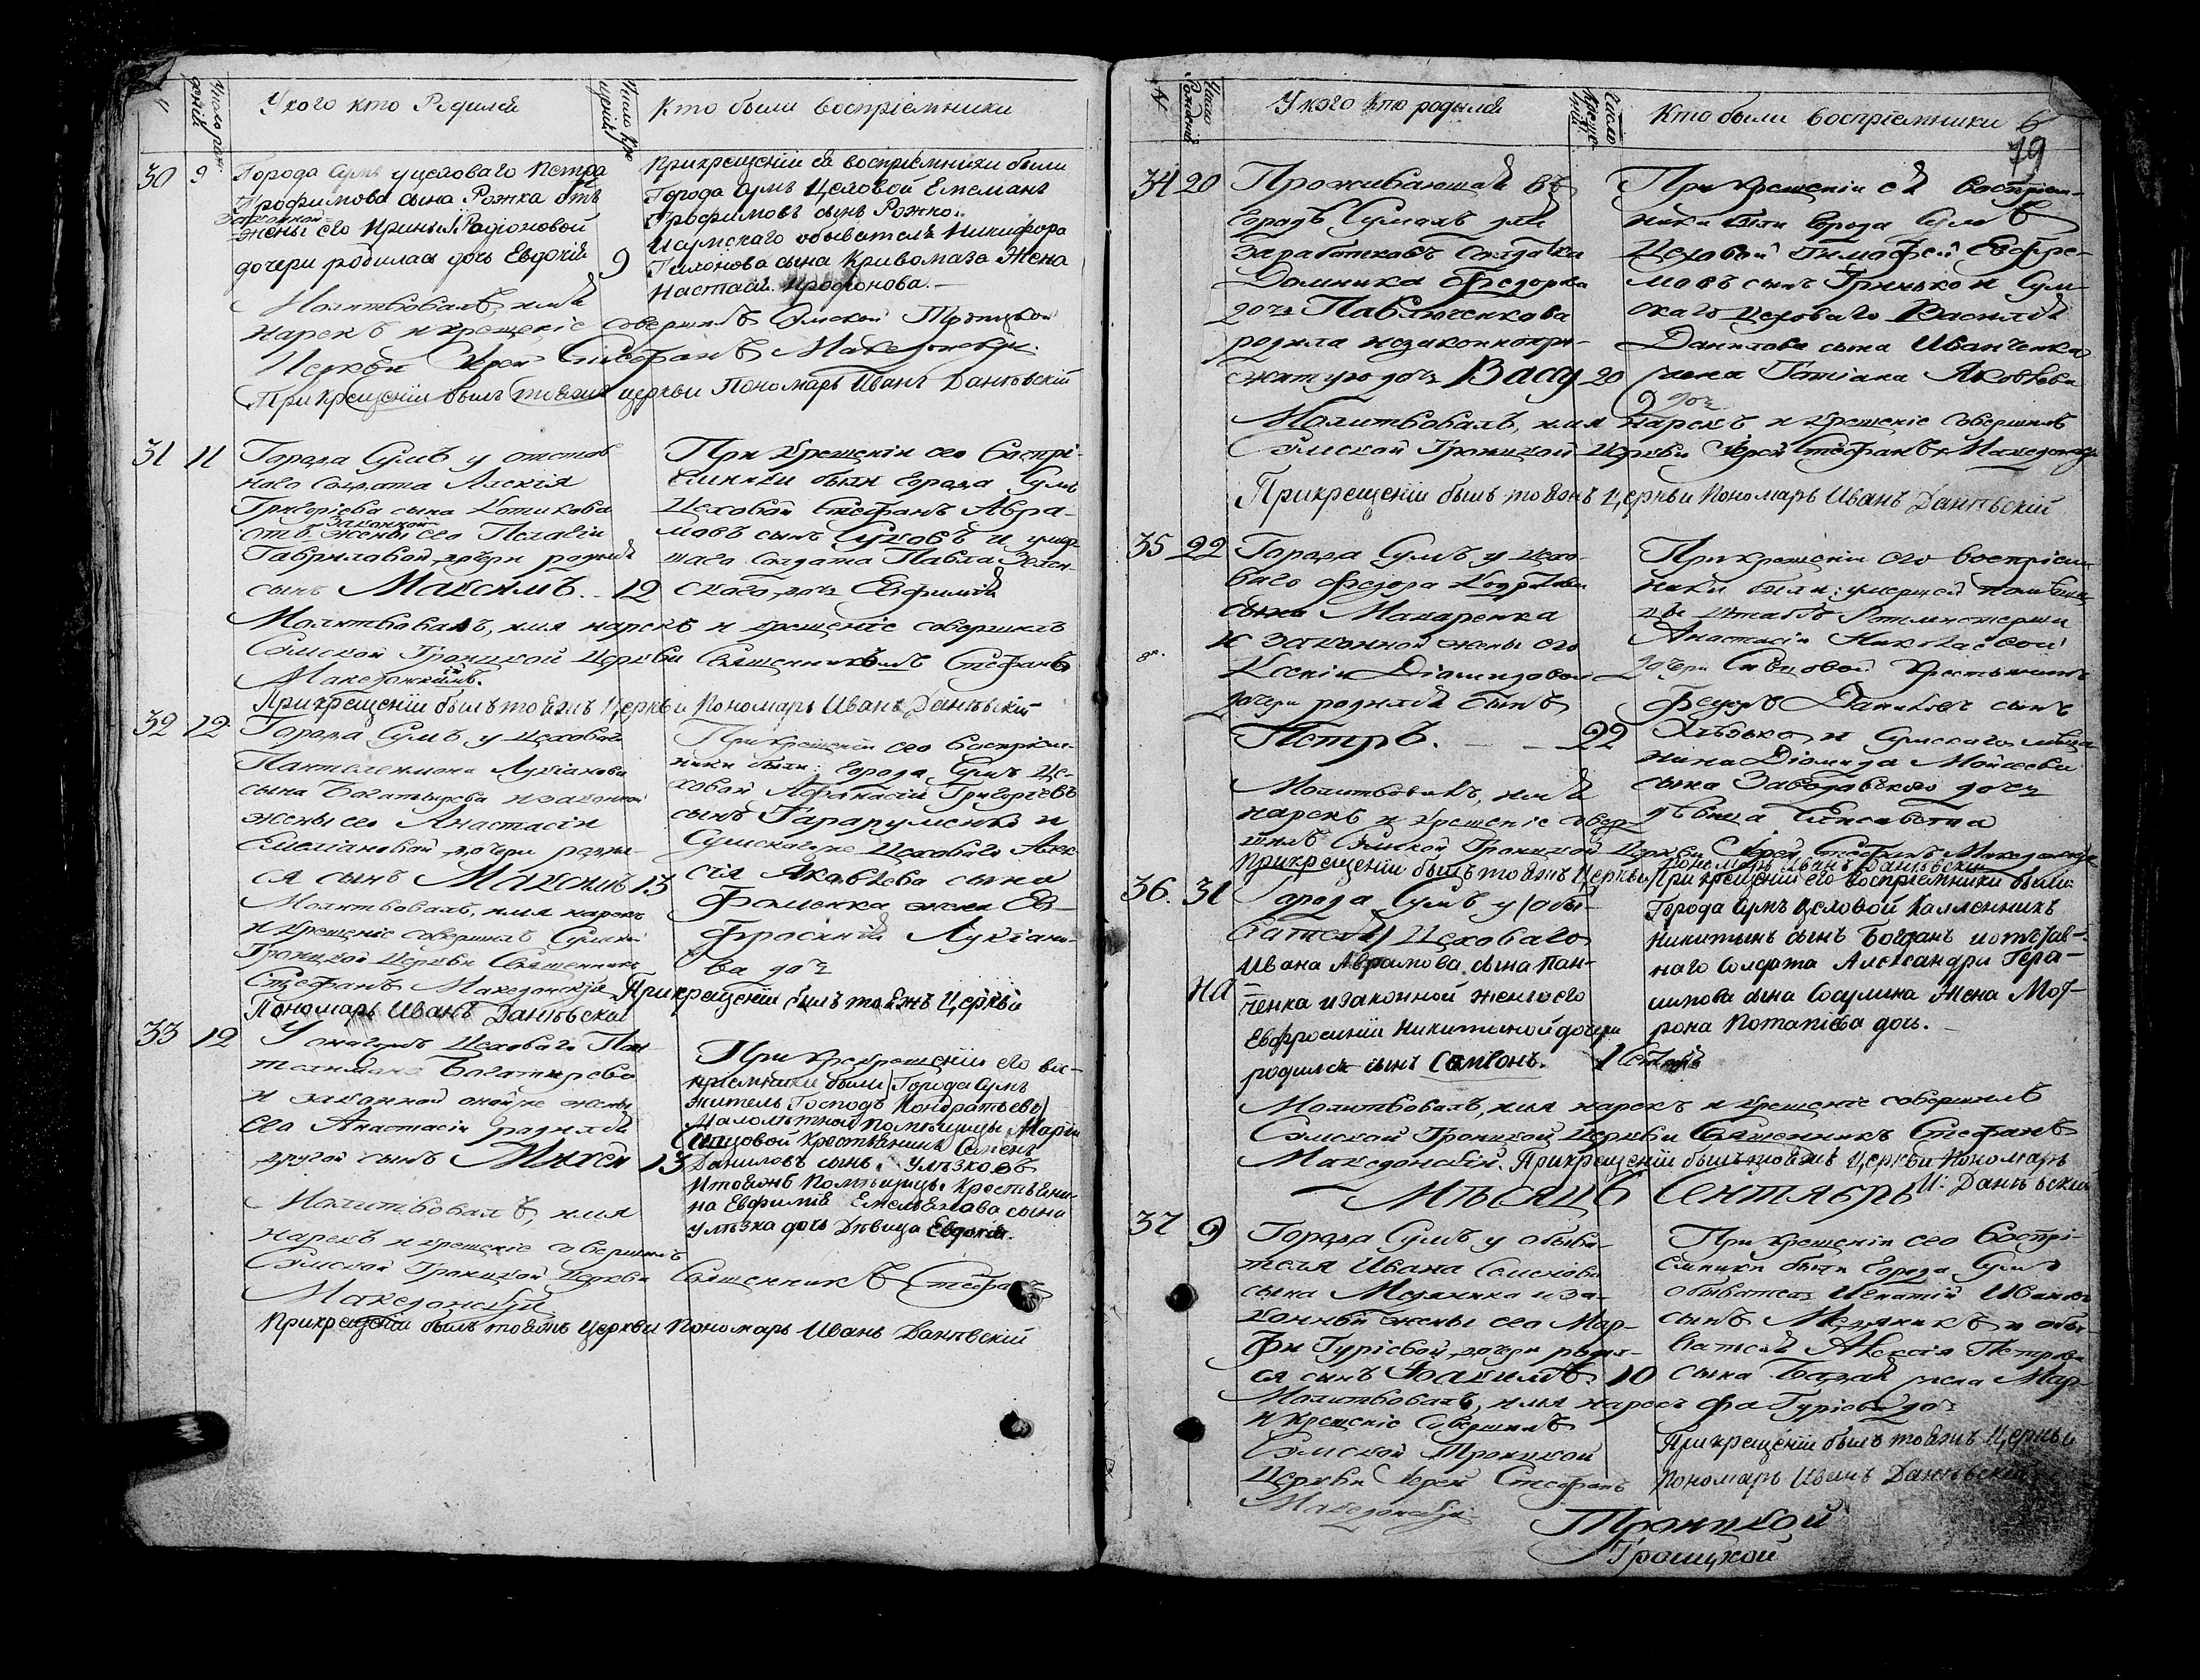 Число рож
деній
У кого кто Родился
Число кре
щенія
Кто были воспріемники
30 9
Города Сумъ у цеховаго Петра
Трофимова сына Рожка отъ
законной
жены его Ирины Родіоновой
дочери родилась дочь Евдокія 9
Прикрещеніи ея воспріемники были
Города Сумъ Цеховой Емеліанъ
Трофимовъ сынъ Рожко.
И сумскаго обывателя Никифора
Тихонова сына Кривомаза Жена
Настасія
Молитвовалъ, имя
нарекъ и крещеніе совершилъ Сумской Троицкой
Церкви Іерей Стефанъ Македонскій.
При Крещеніи былъ тояжъ церкви Пономарь Иванъ Данѣвскій
31 11
Города Сумъ у отстав
наго Солдата Алексія
Григоріева сына Котикова
законной
отъ жены его Пелагіи
Гавриловой дочери родился
сынъ Максимъ. 12
При крещеніи его Воспрі-
емники были Города Сумъ
Цеховой Стефанъ Авра-
мовъ сынъ Суковъ и умер
шаго Солдата Павла Зелен-
скаго дочь Евфимія
Молитвовалъ, имя нарекъ и крещеніе совершилъ
Сумской Троицкой Церкви Священникъ Стефанъ
Македонскій.
Прикрещеніи былъ тояжъ Церкви Пономарь Иванъ Данѣвскій
32 12
Города Сумъ у Цеховаго
Пантелеимона Лукіанова
сына Богатырева и законной
жены его Анастасіи
Емеліановой дочери родил
ся сынъ Максимъ 13
При крещеніи его Воспріем-
ники были: Города Сумъ Це-
ховой Афанасій Григоріевъ
сынъ Тараруменко и
Сумскагоже Цеховаго Алек
сія Яковлева сына
Фоменка жена Ев-
фросинія Лукіано-
ва дочь
Молитвовалъ, имя нарекъ
и крещеніе совершилъ Сумской
Троицкой Церкви Священникъ
Стефанъ Македонскій При крещеніи былъ тояжъ Церкви
Пономарь Иванъ Данѣвскій
33 12
У онагожъ Цеховаго Пан
телимона Богатырева
и законной онойже жены
его Анастасіи родился
другой сынъ Михей 13
При крещеніи его вос-
пріемники были Города Сумъ
житель Господъ Кондратьевъ
Малолѣтной помѣщицы Маріи
крестьянинъ Семенъ
Даниловъ сынъ Улѣзковъ
И тояжъ Помѣщицы Крестьяни-
на Евфимія Емельянова сына
Улѣзка дочь Дѣвица Евдокія.
Молитвовалъ, имя
нарекъ и крещеніе совершилъ
Сумской Троицкой Церкви Священникъ Стефанъ
Македонскій
Прикрещеніи былъ тояжъ Церкви Пономарь Иванъ Данѣвскій
№
Число
Рожденія
У кого кто родился
Число
Креще-
нія
Кто были воспріемники
79
34 20
Проживающая въ
градѣ Сумахъ для
заработковъ Солдатка
Домника Федорова
дочь Павлюченкова
родила незаконнопри-
житую дочь Вассу 20
При крещеніи ея Воспріем-
ники были Города Сумъ
Цеховой Тимофей Евфре-
мовъ сынъ Гринько и Сум
скаго цеховаго Василія
Данилова сына Иванченка
жена Татіана Яковлева
дочь
Молитвовалъ, имя нарекъ и крещеніе совершилъ
Сумской Троицкой Церкви Іерей Стефанъ Македонскій
Прикрещеніи былъ тояжъ Церкви Пономарь Иванъ Данѣвскій
35 22
Города Сумъ у цехо-
ваго Федора
сына Макаренка
и законной жены его
Ксеніи Діомидовой
дочери родился сынъ
Петръ. 22
При крещеніи его воспріем
ники были: умершей помѣщи
цы Штабъ Ротмистерши
Анастасіи Николаевой
дочери крестьянинъ
Федоръ Даниловъ сынъ
и Сумскаго мѣща
нина Діомида Моисеева
сына Заводовскаго дочь
дѣвица Елисавета
Молитвовалъ, имя
нарекъ и крещеніе совер-
шилъ Сумской Троицкой Церкви Іерей Стефанъ Македонскій
Прикрещеніи былъ тояжъ Церкви
Пономарь Иванъ Данѣвскій
36. 31
Города Сумъ у обы-
вателя Цеховаго
Ивана Аврамова сына Пан-
ченка и законной жены его
Евфросиніи Никитиной дочери
родился сынъ Семіонъ. 1 Сентября
При крещеніи его воспріемники были
Города Сумъ Цеховой Каленникъ
Никитинъ сынъ Богданъ и отстав-
наго Солдата Александра Гера-
симова сына Сосулина Жена Мот-
рона Потапіева дочь.
Молитвовалъ, имя нарекъ и крещеніе совершилъ
Сумской Троицкой Церкви Священникъ Стефанъ
Македонскій. Прикрещеніи былъ тояжъ Церкви Пономарь
И: Данѣвскій
Мѣсяцъ Сентябрь
37 9
Города Сумъ у обыва-
теля Ивана Семенова
сына Медяника и за-
конной жены его Мар-
фы Гуріевой дочери родил-
ся сынъ Іоакимъ 10
При крещеніи его Воспрі-
емники были Города Сумъ
обыватель Игнатій Ивановъ
сынъ Медяникъ и обы-
вателя Алексія Петрова
сына жена Мар-
фа Гуріева дочь
Молитвовалъ, имя нарекъ
и крещеніе Совершилъ
Сумской Троицкой
Церкви Іерей Стефанъ
Македонскій
Прикрещеніи былъ тояжъ Церкви
Пономарь Иванъ Данѣвскій
Троицкой
Троицкой